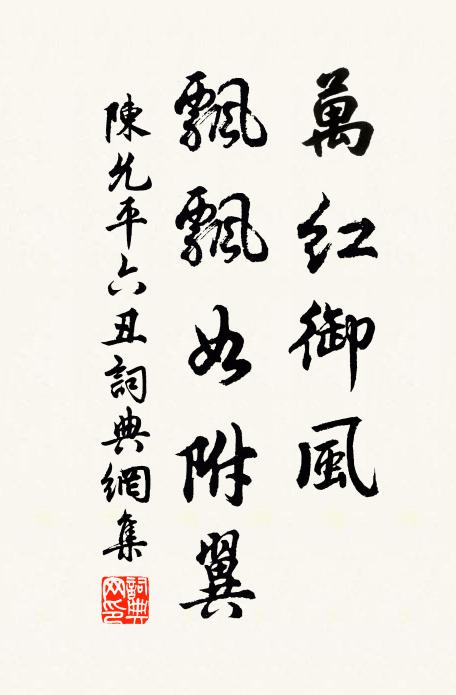 萬紅御風
飄飄如附翼
陳允平六丑詞典網集
詞典網印